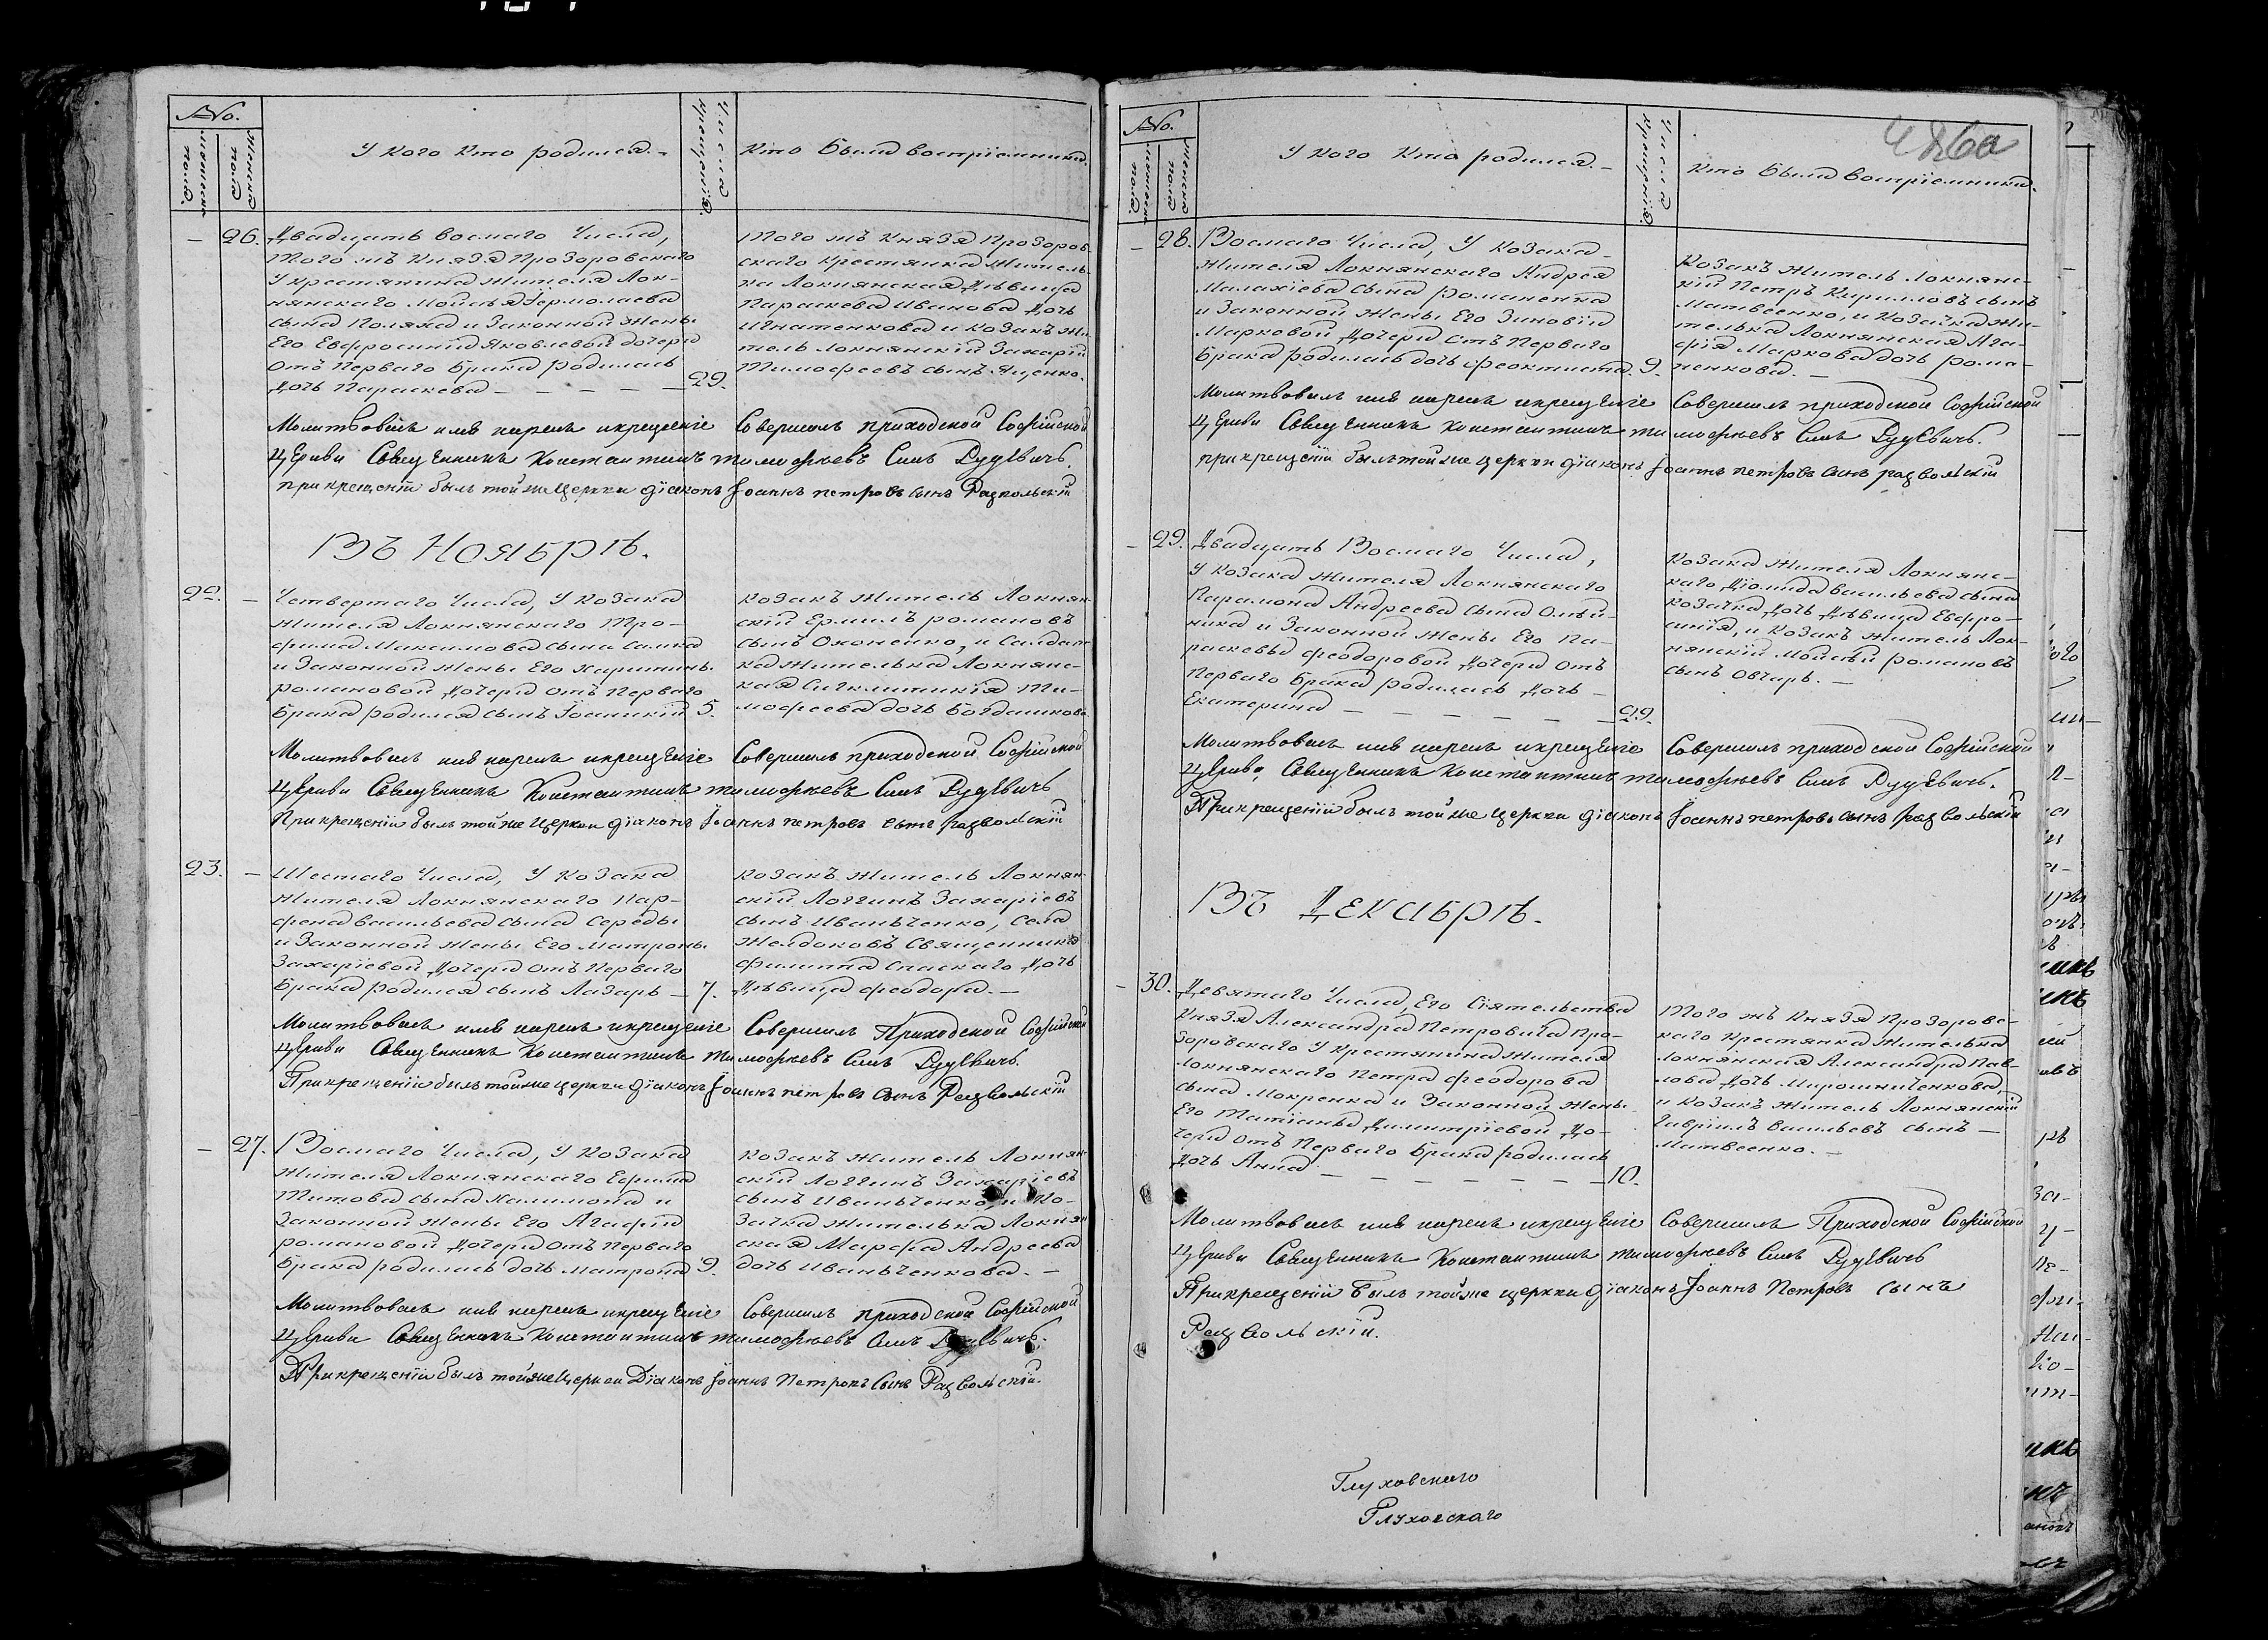 №.
Мужеска пола.
Женска пола
У кого Кто родился.
Числа крещенія.
Кто Былъ воспріемника.
26.
Двадцать Восмаго Числа,
того жъ Князя Прозоровского
У крестянина жителя Лок-
нянскаго Мойсея Ермолаева
сына Поляха и Законной жены
Его Евфросиніи Яковлевой дочери
отъ Перваго Брака родилась
дочь Параскева
29.
Того жъ Князя Прозоров-
скаго крестянка житель-
ка Локнянская Дѣвица
Параскева Иванова дочь
Игнатенкова и козакъ жи-
тель Локнянскій Захарій
Тимофеевъ сынъ Яценко.
Молитвовалъ имя нарекъ икрещеніе Совершилъ приходской Софійской
Церкви Священникъ Константинъ тимофѣевъ Сынъ Рудевичъ.
при крещеніи былъ тойже Церкви діаконъ Іоаннъ петровъ сынъ Развольскій
Въ Ноябрѣ.
22.
Четвертаго Числа, У козака
жителя Локнянскаго Тро-
фима Максимова сына Самка
и Законной жены Его Харитины
романовой Дочери отъ Перваго
Брака родился сынъ Іоанникій 5.
козакъ житель Локнян-
скій Ермилъ романовъ
сынъ Охоненко, и Салдат-
ка жителька Локнянс-
кая Сигклитикія Ти-
мофеева дочь Богдашкова
Молитвовалъ имя нарекъ икрещеніе Совершилъ приходской Софійской
Церкви Священникъ Константинъ тимофѣевъ Сынъ Рудевичъ
При крещеніи былъ тойже Церкви діаконъ Іоаннъ петровъ сынъ развольскій
23.
Шестаго Числа, У козака
жителя Локнянскаго Пар-
фена васильева сына Середы
и Законной жены Его Матроны
Захаріевой Дочери отъ Перваго
Брака родился сынъ Лазарь 7.
козакъ житель Локнян-
скій Логгинъ Захаріевъ
сынъ Иваньченко, Села
Желдоковъ Священника
Филиппа Спаскаго Дочь
Дѣвица Феодора.
Молитвовалъ имя нарекъ икрещеніе Совершилъ Приходской Софійской
Церкви Священникъ Константинъ тимофѣевъ Сынъ Рудевичъ.
При крещеніи былъ тойже церкви діаконъ Іоаннъ петровъ Сынъ Развольскій
27.
Восмаго Числа, У козака
жителя Локнянскаго Ефима
Титова сына Халимона и
Законной жены Его Агафіи
романовой Дочери отъ Перваго
Брака родилась дочь Матрона 9.
козакъ житель Локнян-
скій Логгинъ Захаріевъ
сынъ Иваньченко, и Ко-
зачка жителька Локнян-
ская Марфа Андреева
дочь Иваньченкова.
Молитвовалъ имя нарекъ икрещеніе Совершилъ приходской Софійской
Церкви Священникъ Константинъ тимофѣевъ Сынъ Рудевичъ.
При крещеніи былъ тойже Церкви Діаконъ Іоаннъ Петровъ Сынъ Развольскій.
№.
Мужеска пола.
Женска пола
У кого Кто родился.
Числа крещенія.
Кто Былъ воспріемника.
28.
Восмаго Числа, У козака
жителя Локнянскаго Андрея
Малахіева сына романенка
и Законной жены Его Зиновіи
Марковой Дочери отъ Перваго
Брака родилась дочь Феоктиста. 9.
Козакъ житель Локнянс-
кій Петръ Кирилловъ сынъ
Матвеенко, и козачка жи-
телька Локнянская Ага-
фія Маркова дочь рома-
ненкова.
Молитвовалъ имя нарекъ икрещеніе Совершилъ приходской Софійской
Церкви Священникъ Константинъ тимофѣевъ Сынъ Рудевичъ.
при крещеніи былъ тойже церкви діаконъ Іоаннъ петровъ Сынъ развольскій
29.
Двадцать Восмаго Числа,
У козака жителя Локнянскаго
Парамона Андреева сына Олѣй-
ника и Законной жены Его Па-
раскевы Феодоровой Дочери отъ
Перваго Брака родилась Дочь
Екатерина
29.
козака жителя Локнянс-
каго Діомида васильева сына
козачка дочь Дѣвица Евфро-
синія, и козакъ житель Лок-
нянскій Мойсей романовъ
сынъ Овчаръ.
Молитвовалъ имя нарекъ икрещеніе Совершилъ приходской Софійской
Церкви Священникъ Константинъ тимофѣевъ Сынъ Рудевичъ.
При крещеніи былъ тойже церкви діаконъ Іоаннъ петровъ сынъ развольскій
Въ Декабрѣ.
30.
Девятаго Числа, Его Сіятельства
Князя Александра Петровича Про-
зоровскаго У крестянина жителя
Локнянскаго Петра Феодорова
сына Мокренка и Законной жены
Его Татіаны Димитріевой До-
чери отъ Перваго Брака родилась
дочь Анна
10.
Того жъ Князя Прозоровс-
каго Крестянка жителька
Локнянская Александра Пав-
лова дочь Мирошниченкова,
и козакъ житель Локнянскій
Гавріилъ Васильевъ сынъ
Матвеенко.
Молитвовалъ имя нарекъ икрещеніе Совершилъ Приходской Софійской
Церкви Священникъ Константинъ тимофѣевъ Сынъ Рудевичъ
При крещеніи былъ тойже церкви діаконъ Іоаннъ Петровъ сынъ
Развольскій.
Глуховскаго
Глуховскаго